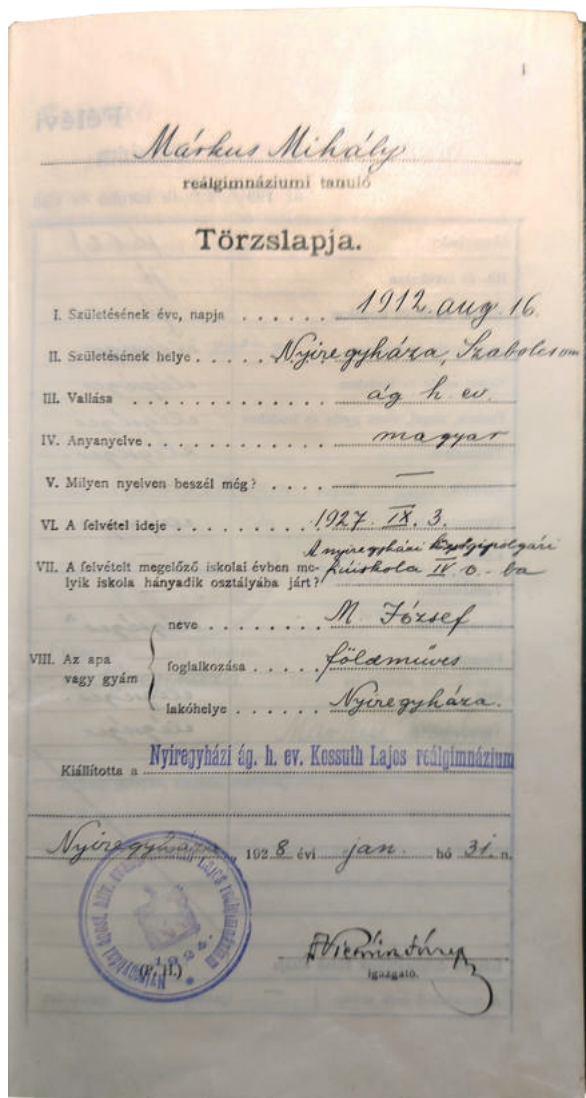 1
Márkus Mihály
reálgimnáziumi tanuló
Törzslapja.
I. Születésének éve, napja . . . . . . 1912. aug. 16.
II. Születésének helye . . Nyiregyháza, Szabolcsvm
III. Vallása . . . . . . . . . . . . . ág. h. ev.
IV. Anyanyelve . . . . . . . . . . . . magyar
V. Milyen nyelven beszél még? . . . . —
VI. A felvétel ideje . . . . . . . . . 1927. IX. 3.
A nyiregyházi polgári
VII. A felvételt megelőző iskolai évben me-
lyik iskola hányadik osztályába járt? fiúiskola IV. o.-ba
neve . . . . . . . . M. József
VIII. Az apa
vagy gyám
foglalkozása . . . . . földmüves
lakóhelye . . . . . . Nyiregyháza.
Kiállította a Nyiregyházi ág. h. ev. Kossuth Lajos reálgimnázium
Nyiregyháza, 1928. évi jan. hó 31. n.
1924.
(P. H.)
igazgató.